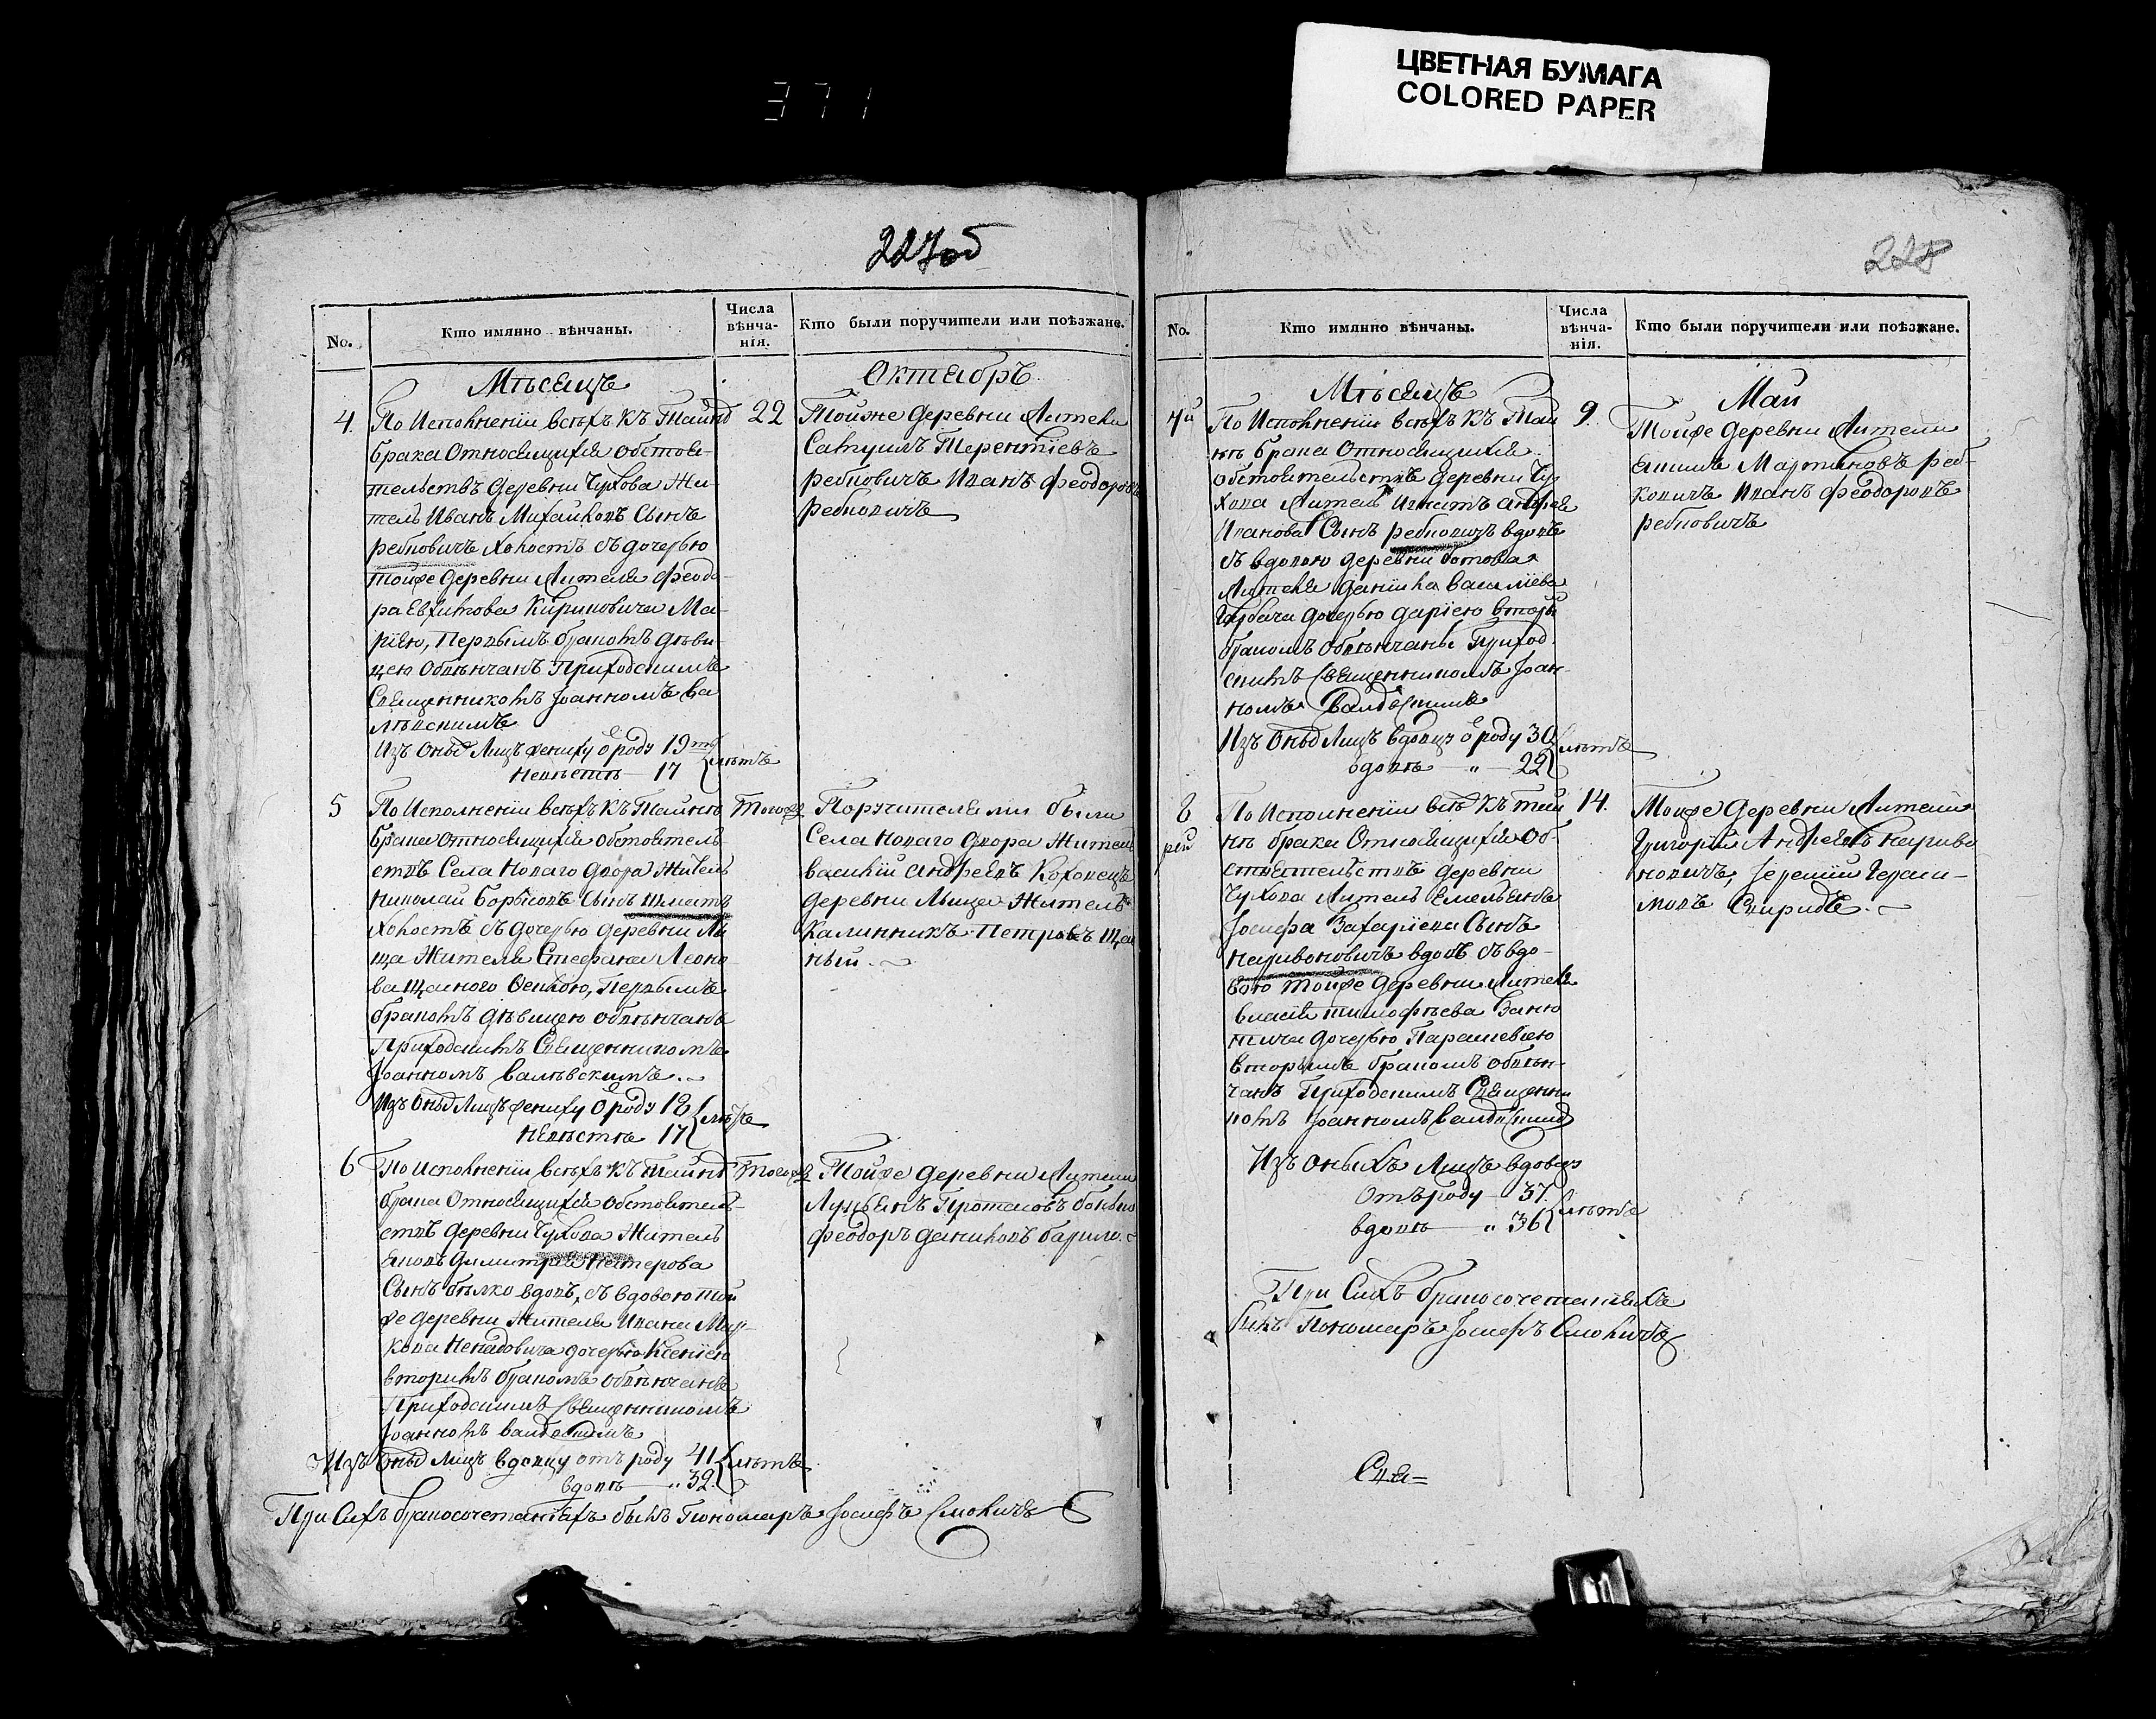 371
ЦВЕТНАЯ БУМАГА
COLORED PAPER
227об
No.
Кто имянно вѣнчаны.
Числа
вѣнча-
нія.
Кто были поручители или поѣзжане.
Мѣсецъ
Октебръ
4.
По Исполненіи всѣхъ къ Тайнѣ
брака Относещихся обстоя-
тельствъ деревни Чухова Жи-
тель Иванъ Михайловъ Сынъ
ребковичъ Холостъ съ дочерью
тойже деревни Жителя Феодо-
ра Кириковича Ма-
ріею, Первымъ бракомъ дѣви-
цею Обвѣнчанъ Приходскимъ
Священникомъ Іоанномъ Ва
лѣвскимъ
Изъ Оныхъ Лицъ жениху о роду 19
Невѣстѣ — 17
лѣтъ
22
Тойже деревни Жители
Терентіевъ
ребковичъ Иванъ Феодоровъ
Ребковичъ
5
По Исполненіи всѣхъ къ Тайнѣ
брака Относящихся обстоятель
ствъ Села Новаго Двора Житель
Николай Борисовъ Сынъ
Холостъ съ дочерью деревни Лы
ща Жителя Стефана Леоно
ва Первымъ
бракомъ дѣвицею обвѣнчанъ
Приходскимъ Священникомъ
Іоанномъ Валѣвскимъ.
Изъ Оныхъ Лицъ жениху о роду 18
Невѣстѣ 17
лѣтъ
Тогожъ
Поручителями были
Села Новаго Двора Жители
Василій Андреевъ
деревни Лыща Житель
Калинникъ Петровъ Ща
ный.
6
По Исполненіи всѣхъ къ Тайнѣ
брака Относящихся обстоятель-
ствъ деревни Чухова Житель
Нестерова
Сынъ бѣлко вдовъ, съ вдовою той
же деревни Жителя Ивана Мар-
кова дочерью Ксеніею
вторымъ бракомъ обвѣнчанъ
Приходскимъ Священникомъ
Іоанномъ Валевскимъ
Изъ Оныхъ Лицъ вдовцу отъ роду 41
вдовѣ „ 39.
лѣтъ
Тогожъ
Тойже деревни Жители
Феодоръ Даниловъ
При Сихъ бракосочетаніяхъ былъ Пономаръ Іосифъ Смоличъ
228
No.
Кто имянно вѣнчаны.
Числа
вѣнча-
нія.
Кто были поручители или поѣзжане.
Мѣсецъ
Май
По Исполненіи всѣхъ къ Тай
нѣ брака Относящихся
обстоятельствъ деревни Чу
хова Житель Игнатъ Андрея
Иванова Сынъ ребковичъ вдовъ
съ вдовою деревни
Жителя Данила Василіева
дочерью Даріею вторы
бракомъ обвѣнчанъ Приход
скимъ Священникомъ Іоан-
номъ Валевскимъ
Изъ Оныхъ Лицъ вдовцу о роду 30
вдовѣ — „ — 29
лѣтъ
9.
Тойже деревни Жители
Мартиновъ реб-
ковичъ Иванъ Феодоровъ
ребковичъ
8
рій
По Исполненіи всѣ къ Тай
нѣ брака Относящихся Об-
стоятельствъ деревни
Чухова Житель Емельянъ
Іосифа Захаріева Сынъ
вдовъ съ вдо-
вою тойже деревни Жителя
Власія Тимофѣева
дочерью Параскевіею
вторымъ бракомъ обвѣн-
чанъ Приходскимъ Священни
комъ Іоанномъ Валевскимъ
Изъ Оныхъ Лицъ вдовцу
Отъ роду 37.
вдовѣ „ 36
лѣтъ
14.
Тойже деревни Жители
Григорій Андреевъ
Іеремій Гераси-
мовъ Спиридъ.
При Сихъ бракосочетаніяхъ
былъ Пономаръ Іосифъ Смоличъ
Свя=